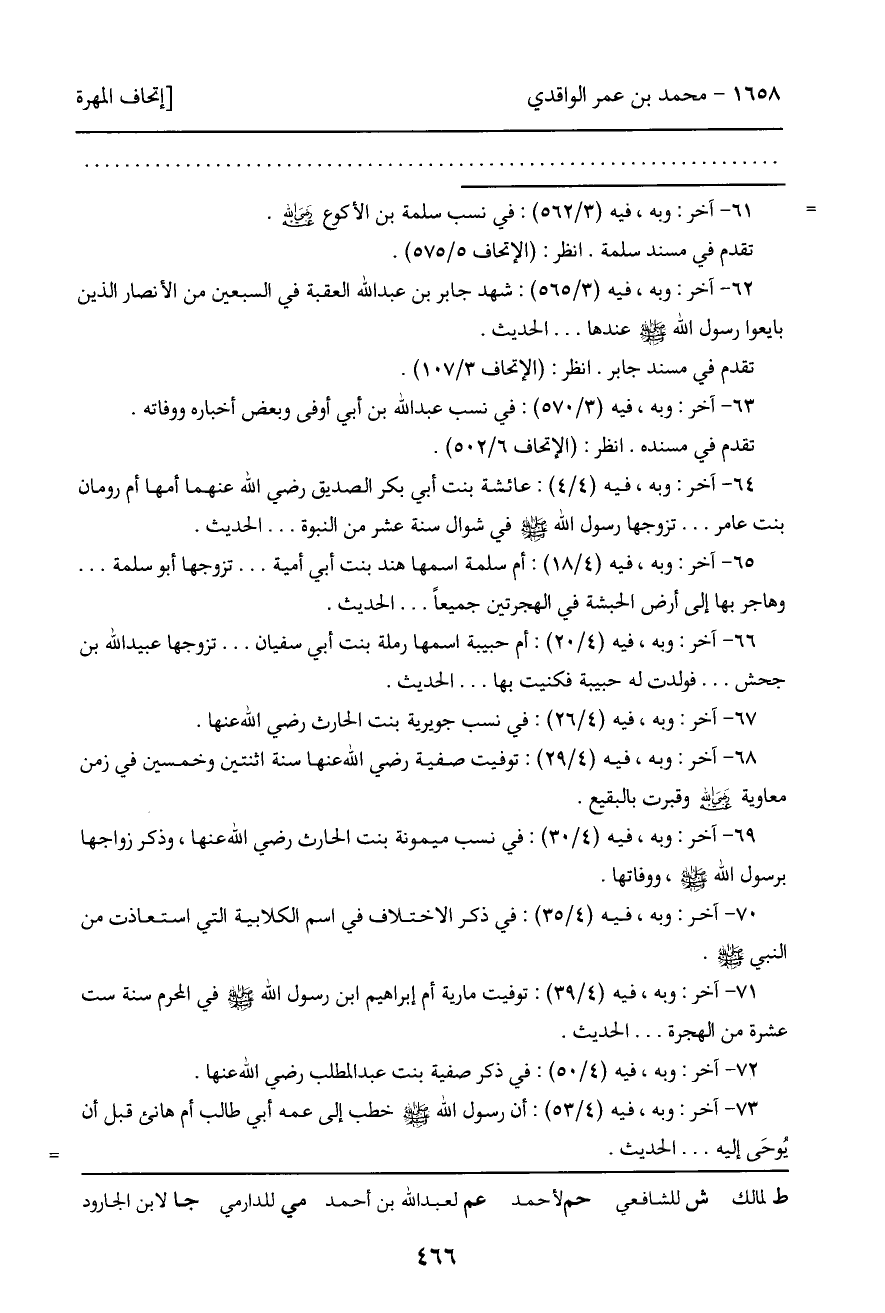 ١٦٥٨ - محمد بن عمر الواقدي [إتحاف المهرة
................................................................
= ٦١- آخر : وبه ، فيه (٥٦٢/٣) : في نسب سلمة بن الأكوع رضي الله عنه .
تقدم في مسند سلمة . انظر : (الإتحاف ٥٧٥/٥) .
٦٢- آخر : وبه ، فيه (٥٦٥/٣) : شهد جابر بن عبدالله العقبة في السبعين من الأنصار الذين
بايعوا رسول الله ﷺ عندها . . . الحديث .
تقدم في مسند جابر . انظر : (الإتحاف ١٠٧/٣) .
٦٣- آخر : وبه ، فيه (٥٧٠/٣) : في نسب عبدالله بن أبي أوفى وبعض أخباره ووفاته .
تقدم في مسنده . انظر : (الإتحاف ٥٠٢/٦) .
٦٤- آخر : وبه ، فيه (٤/٤) : عائشة بنت أبي بكر الصديق رضي الله عنهما أمها أم رومان
بنت عامر . . . تزوجها رسول الله ﷺ في شوال سنة عشر من النبوة . . . الحديث .
٦٥- آخر : وبه ، فيه (١٨/٤) : أم سلمة اسمها هند بنت أبي أمية . . . تزوجها أبو سلمة . . .
وهاجر بها إلى أرض الحبشة في الهجرتين جميعاً . . . الحديث .
٦٦- آخر : وبه ، فيه (٢٠/٤) : أم حبيبة اسمها رملة بنت أبي سفيان . . . تزوجها عبيدالله بن
جحش . . . فولدت له حبيبة فكنيت بها . . . الحديث .
٦٧- آخر : وبه ، فيه (٢٦/٤) : في نسب جويرية بنت الحارث رضي الله عنها .
٦٨- آخر : وبه ، فيه (٢٩/٤) : توفيت صفية رضي الله عنها سنة اثنتين وخمسين في زمن
معاوية رضي الله عنه وقبرت بالبقيع .
٦٩- آخر : وبه ، فيه (٣٠/٤) : في نسب ميمونة بنت الحارث رضي الله عنها ، وذكر زواجها
برسول الله ﷺ ، ووفاتها .
٧٠- آخر : وبه ، فيه (٣٥/٤) : في ذكر الاختلاف في اسم الكلابية التي استعاذت من
النبي ﷺ .
٧١- آخر : وبه ، فيه (٣٩/٤) : توفيت مارية أم إبراهيم ابن رسول الله ﷺ في المحرم سنة ست
عشرة من الهجرة . . . الحديث .
٧٢- آخر : وبه ، فيه (٥٠/٤) : في ذكر صفية بنت عبدالمطلب رضي الله عنها .
٧٣- آخر : وبه ، فيه (٥٣/٤) : أن رسول الله ﷺ خطب إلى عمه أبي طالب أم هانئ قبل أن
يُوحَى إليه . . . الحديث . =
ط لمالك ش للشافعي حم لأحمد عم لعبدالله بن أحمد مي للدارمي جا لابن الجارود
٤٦٦